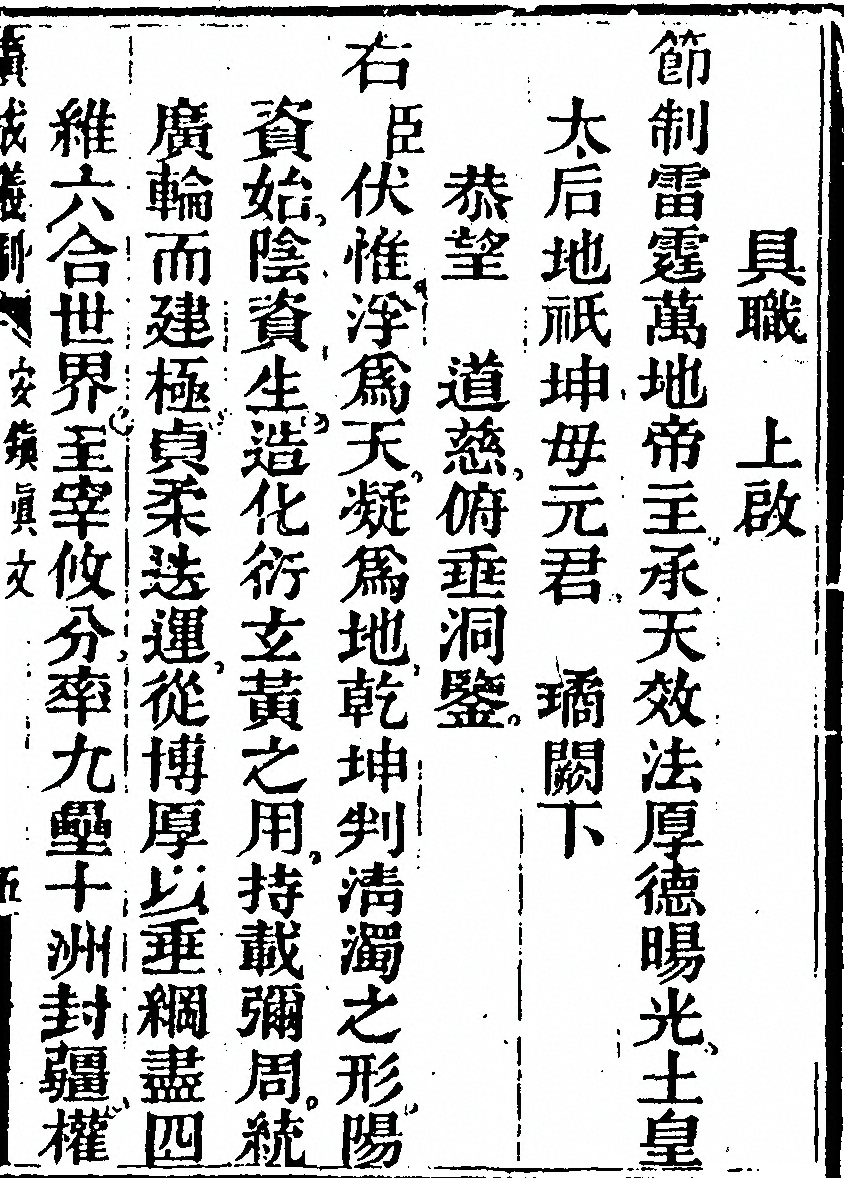 具職　上啟
節制雷霆萬地帝主承天效法厚德暘光土皇
太后地祇坤母元君　璚闕下
恭望　道慈俯垂洞鑒
右臣伏惟浮爲天凝爲地乾坤判清濁之形陽
資始陰資生造化衍玄黃之用持載彌周統
廣輪而建極貞柔迭運從博厚以垂綱盡四
維六合世界主宰攸分率九壘十洲封疆權
廣成儀制　安鎮真文　五